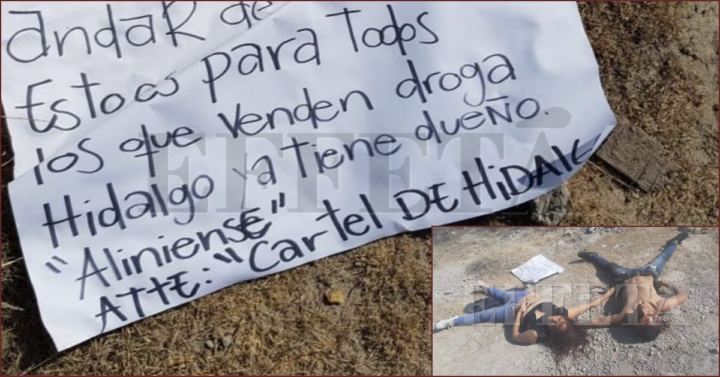 andar de
Esto es para Todos
los que venden droga
Hidalgo ya Tiene dueño.
"Aliniense"
ATTE: "Cartel DE HiDALG
EFFETÁ
EFFETA